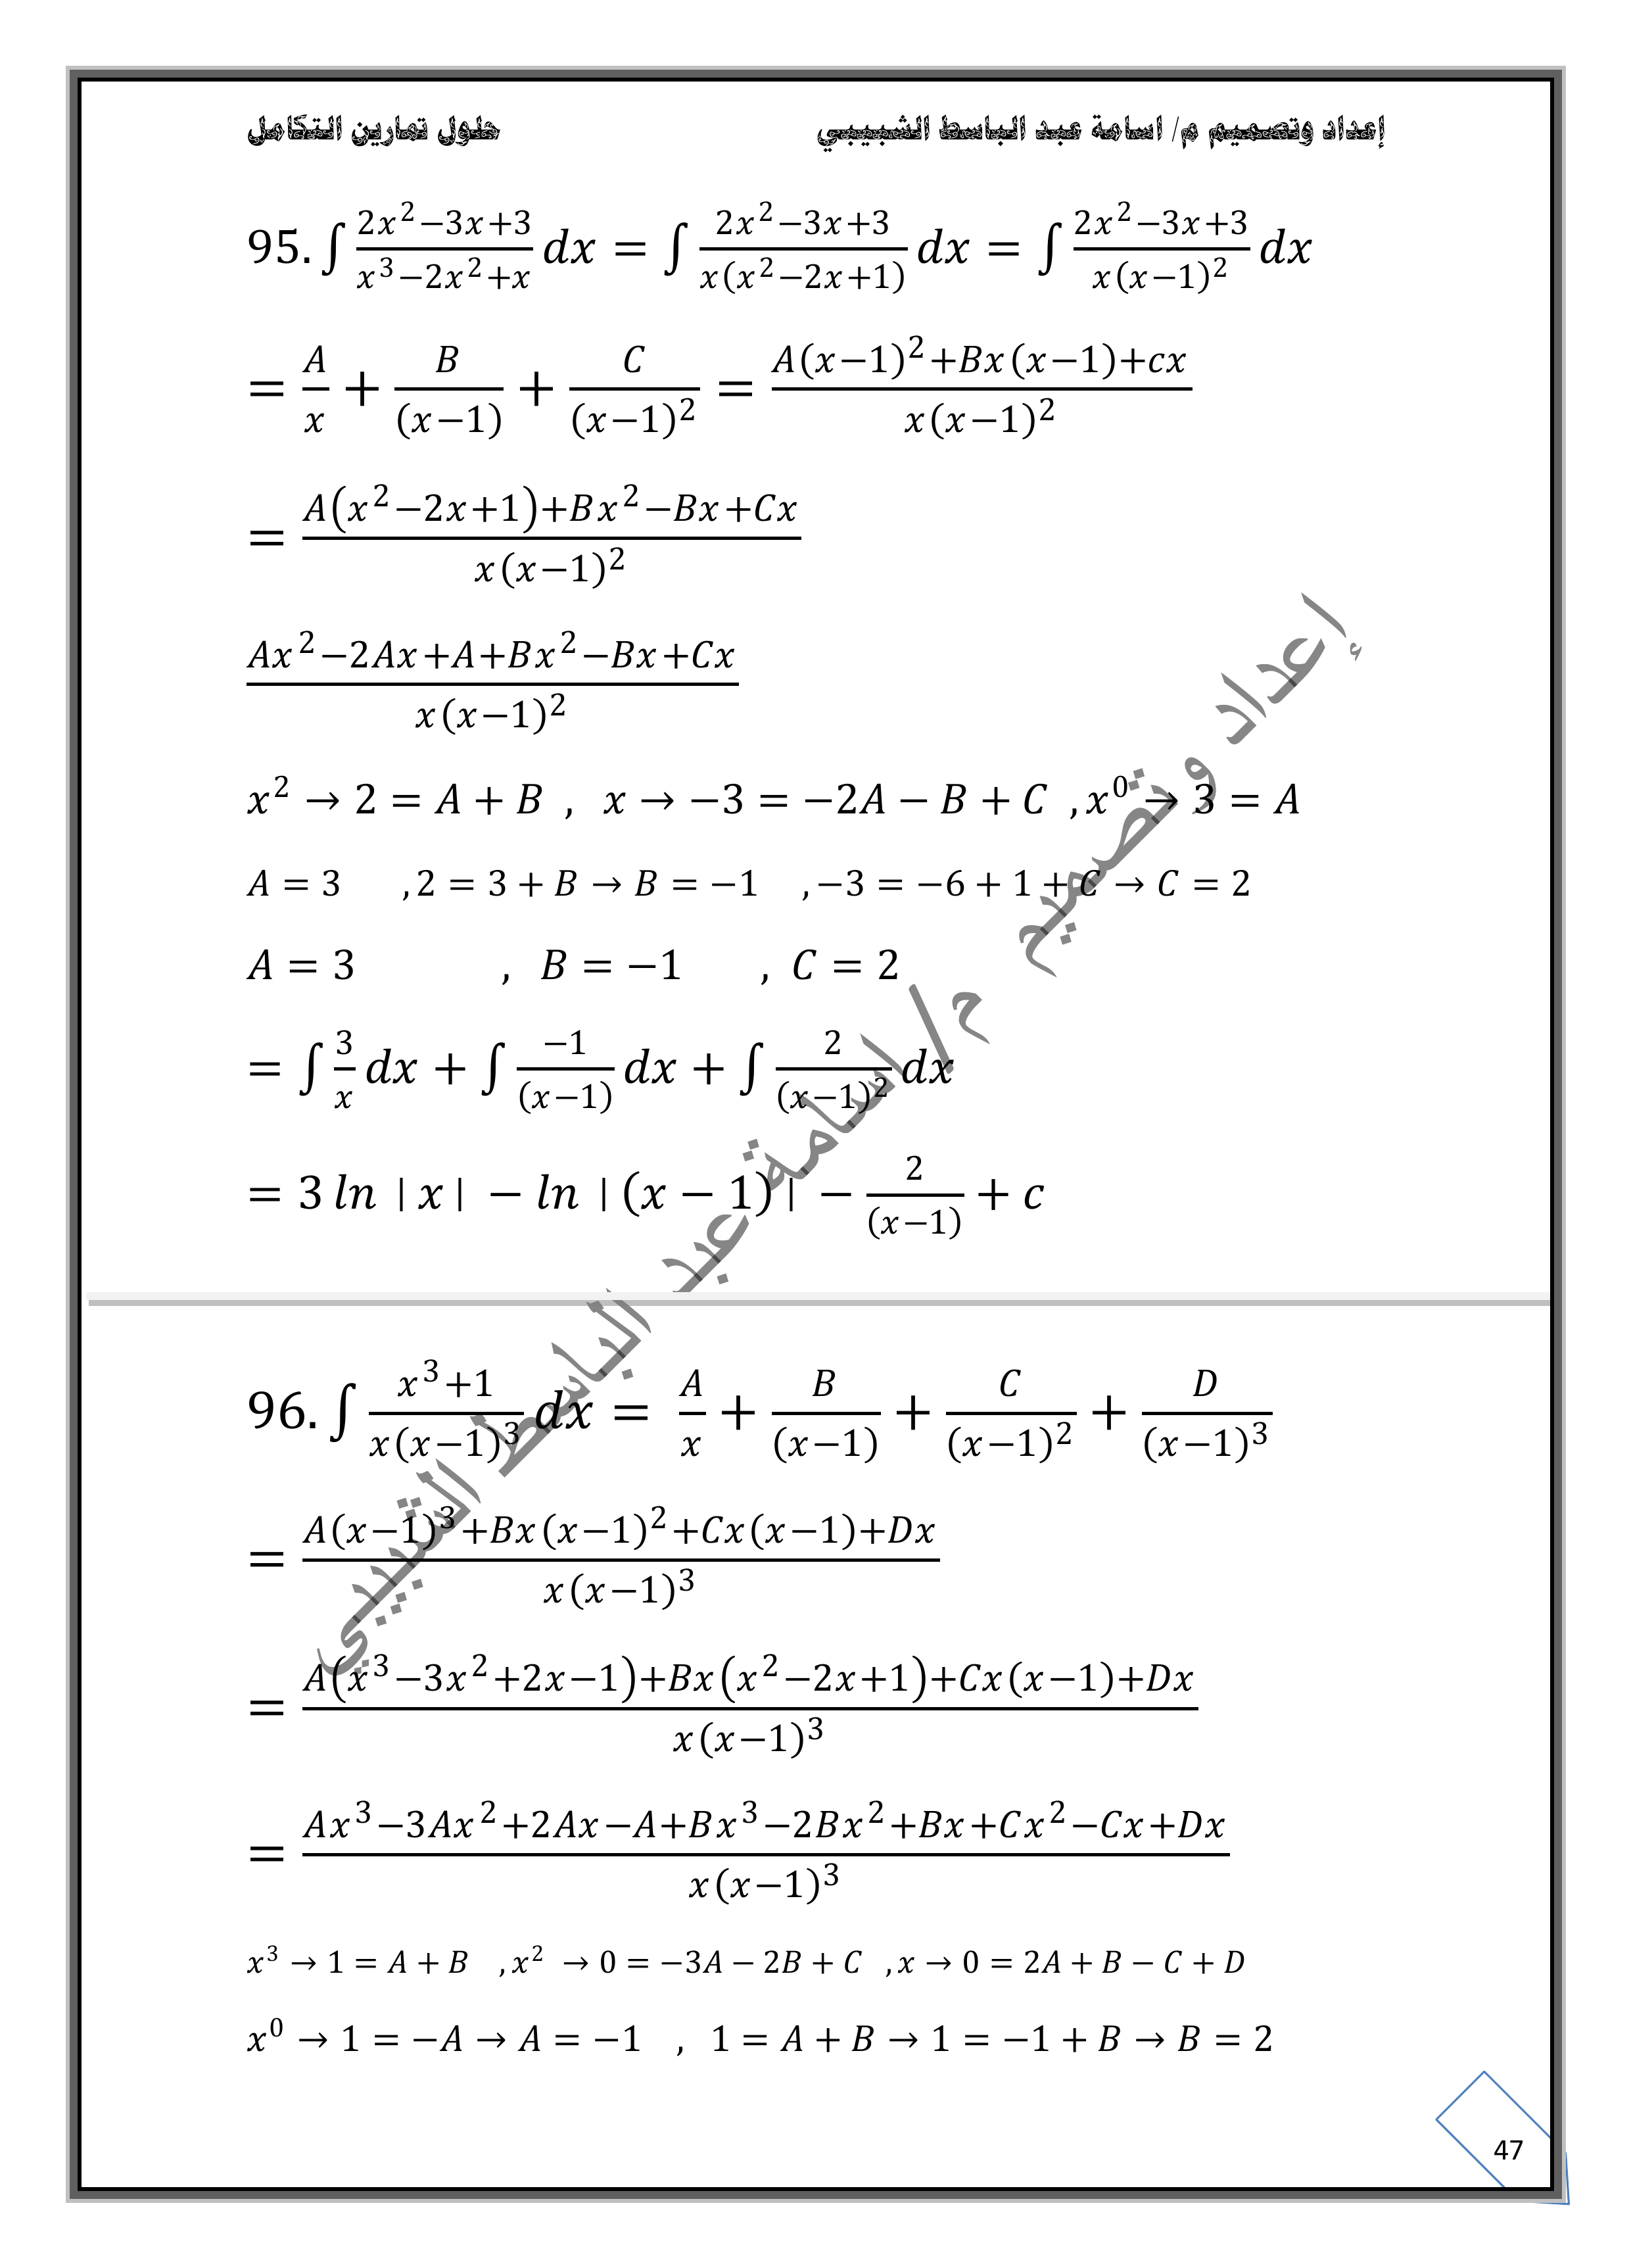 إعداد وتصميم م/ اسامة عبد الباسط الشبيبي حلول تمارين التكامل
95. ∫ (2x²−3x+3)/(x³−2x²+x) dx = ∫ (2x²−3x+3)/(x(x²−2x+1)) dx = ∫ (2x²−3x+3)/(x(x−1)²) dx
= A/x + B/(x−1) + C/(x−1)² = (A(x−1)²+Bx(x−1)+cx)/(x(x−1)²)
= (A(x²−2x+1)+Bx²−Bx+Cx)/(x(x−1)²)
(Ax²−2Ax+A+Bx²−Bx+Cx)/(x(x−1)²)
x² → 2 = A + B , x → −3 = −2A − B + C , x⁰ → 3 = A
A = 3 , 2 = 3 + B → B = −1 , −3 = −6 + 1 + C → C = 2
A = 3 , B = −1 , C = 2
= ∫ 3/x dx + ∫ −1/(x−1) dx + ∫ 2/(x−1)² dx
= 3 ln |x| − ln |(x − 1)| − 2/(x−1) + c
96. ∫ (x³+1)/(x(x−1)³) dx = A/x + B/(x−1) + C/(x−1)² + D/(x−1)³
= (A(x−1)³+Bx(x−1)²+Cx(x−1)+Dx)/(x(x−1)³)
= (A(x³−3x²+2x−1)+Bx(x²−2x+1)+Cx(x−1)+Dx)/(x(x−1)³)
= (Ax³−3Ax²+2Ax−A+Bx³−2Bx²+Bx+Cx²−Cx+Dx)/(x(x−1)³)
x³ → 1 = A + B , x² → 0 = −3A − 2B + C , x → 0 = 2A + B − C + D
x⁰ → 1 = −A → A = −1 , 1 = A + B → 1 = −1 + B → B = 2
إعداد وتصميم م/ اسامة عبد الباسط الشبيبي
47